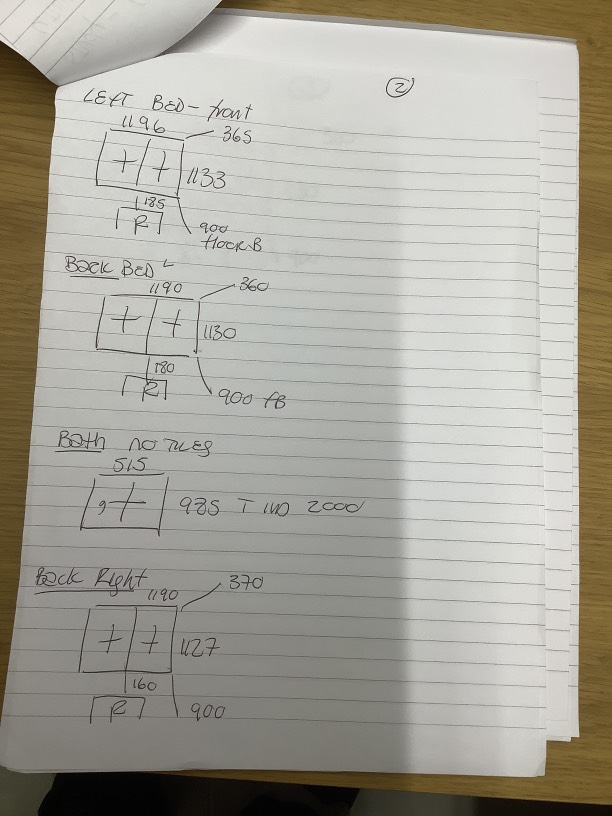 2
LEFT BED - front
1196
365
1133
185
R
900
Back BED L
1190
360
1130
180
R
900 FB
Bath NO TILES
515
985 T IND 2000
Back Right
1190
370
1127
160
R
900